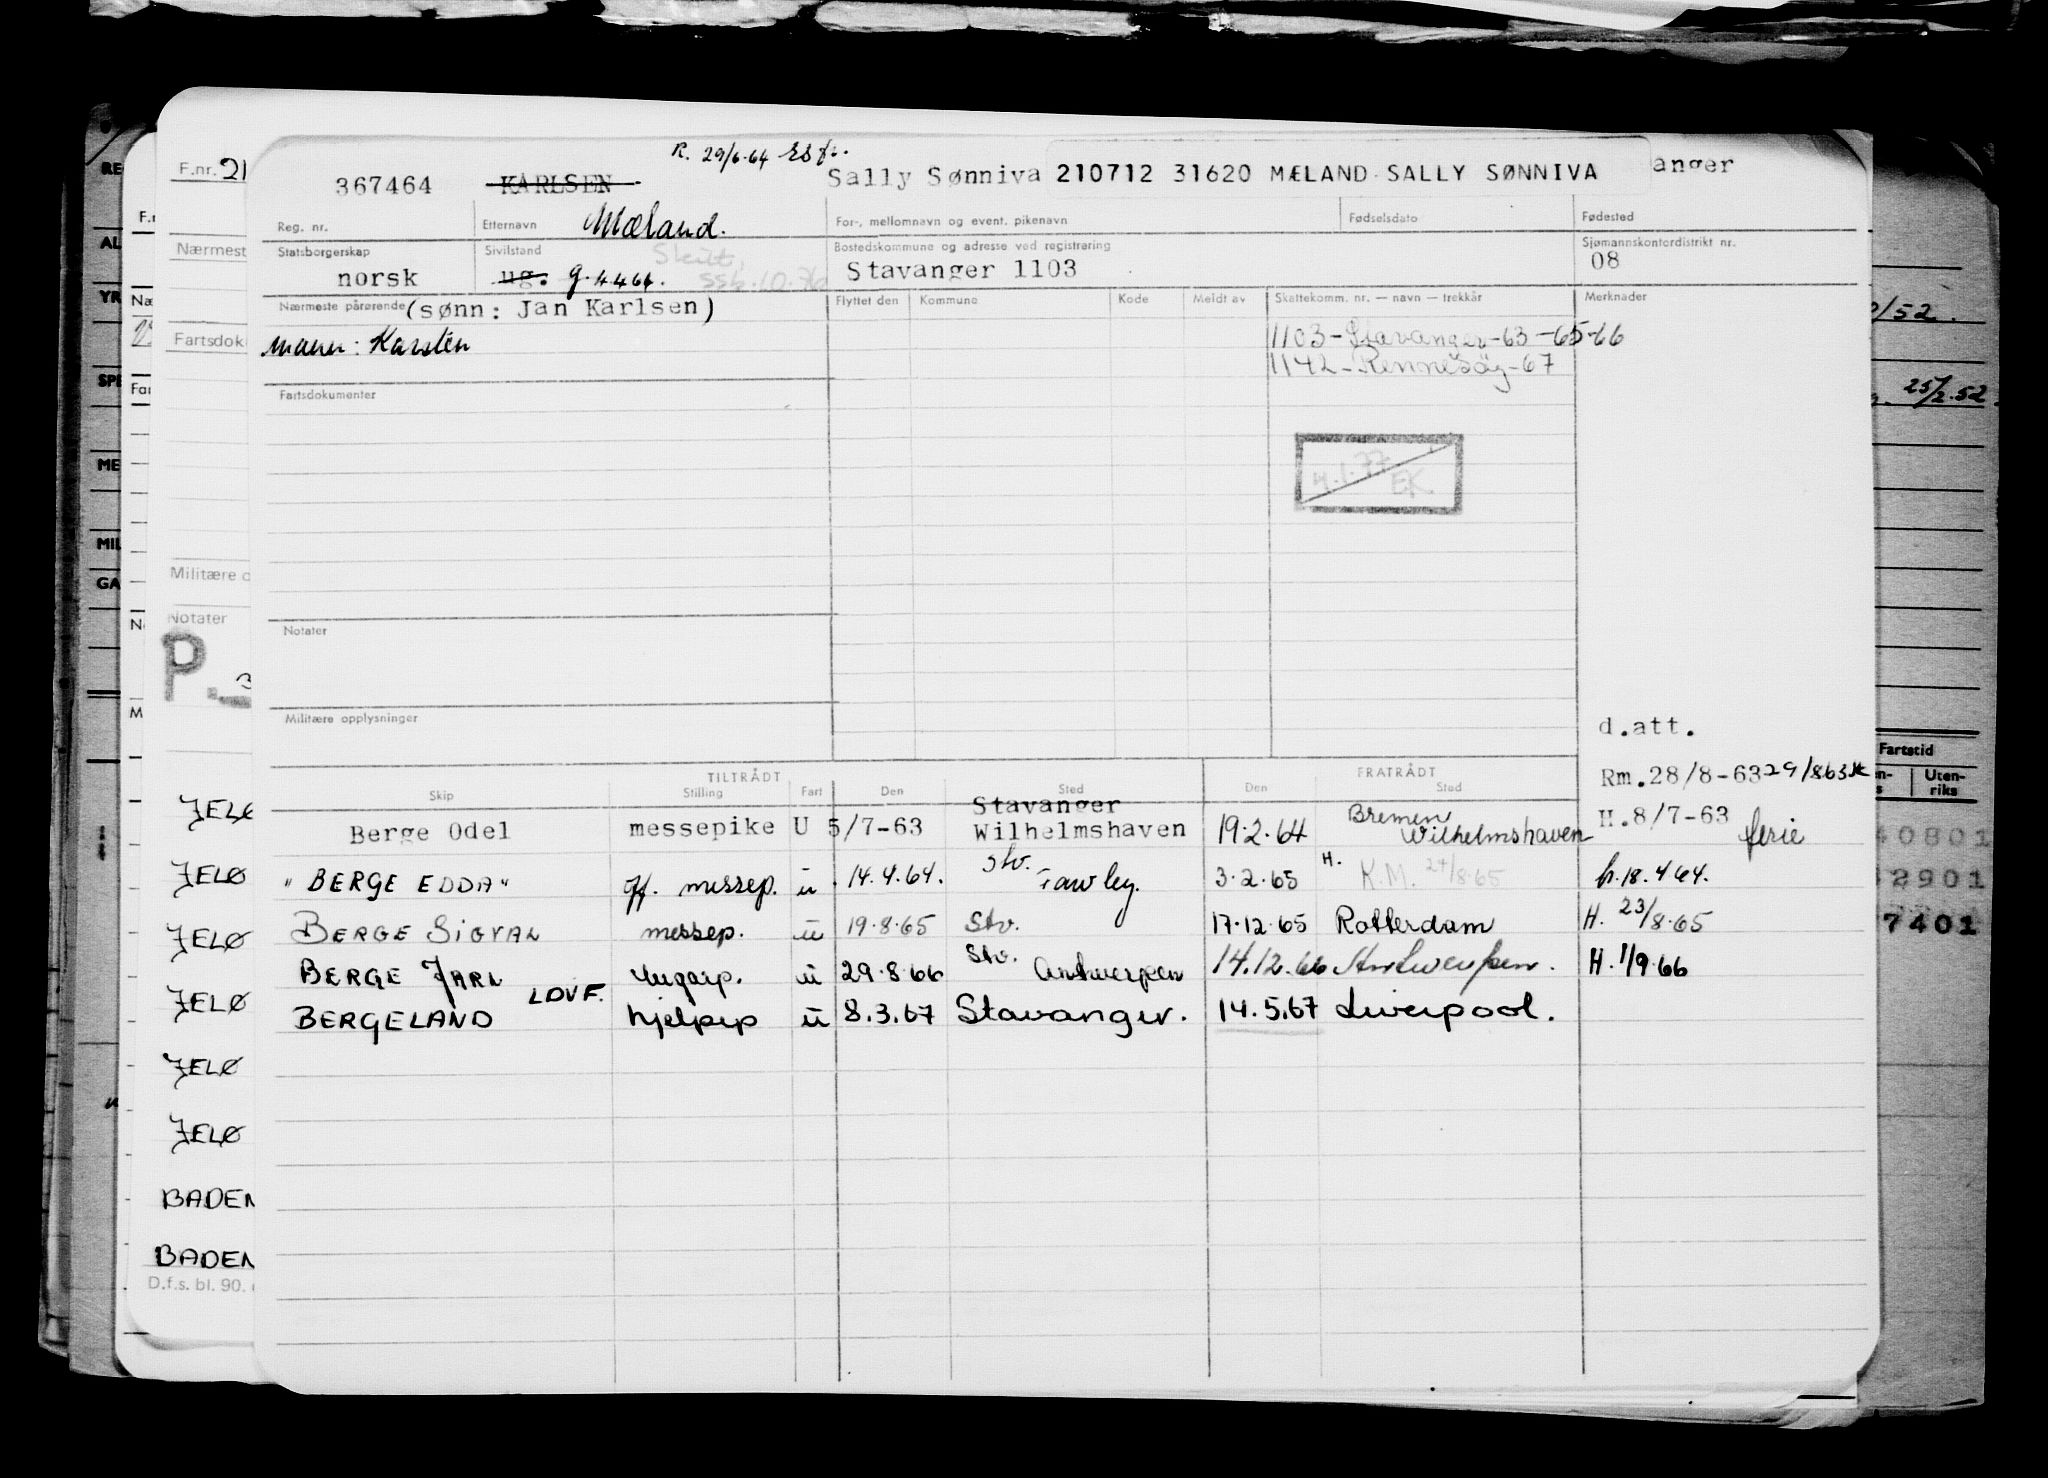 R. 29/6-64
367464 KARLSEN Sally Sønniva 210712 31620 MÆLAND SALLY SØNNIVA anger
Reg. nr. Etternavn Mæland. For-, mellomnavn og event. pikenavn Fødselsdato Fødested
Statsborgerskap Sivilstand Bostedskommune og adresse ved registrering Sjømannskontordistrikt nr.
norsk ug. g. 4466. Skilt, Stavanger 1103 08
Nærmeste pårørende (sønn: Jan Karlsen) Flyttet den Kommune Kode Meldt av Skattekomm. nr. — navn — trekkår Merknader
mann: Karsten 1103-Stavanger-63-65-66
1142-Rennesøy-67
Fartsdokumenter
4.1.77 EK
Notater
Militære opplysninger
d.att.
TILTRÅDT FRATRÅDT Rm.28/8-63 29/863
Skip Stilling Fart Den Sted Den Sted
Berge Odel messepike U 5/7-63 Stavanger Wilhelmshaven 19.2.64 Bremen Wilhelmshaven H.8/7-63 ferie
"BERGE EDDA" off. messep. u 14.4.64. Stv. Fawley. 3.2.65 H. K.M. 24/8.65 h.18.464.
BERGE SIGVAL messep. u 19.8.65 Stv. 17.12.65 Rotterdam H. 23/8.65
BERGE JARL lugarp. u 29.8.66 Stv. Antwerpen 14.12.66 Antwerpen. H. 1/9.66
BERGELAND LOVF. hjelpep u 8.3.67 Stavanger. 14.5.67 Liverpool.
F.nr. 21
Nærmest
Fartsdok
Militære o
Notater
P.
JELØ
JELØ
JELØ
JELØ
JELØ
JELØ
BADEN
BADEN
D.f.s. bl. 90.
RE
AL
YR
SPE
ME
MIL
GA
/52.
25/2.52
Fartstid
Uten-
riks
40801
2901
7401